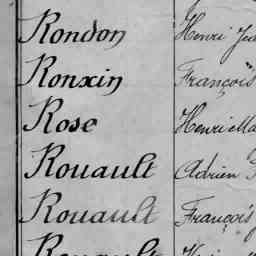 Rondon Henri
Ronxin François
Rose Henri Ma
Rouault Adrien
Rouault François
Rouault